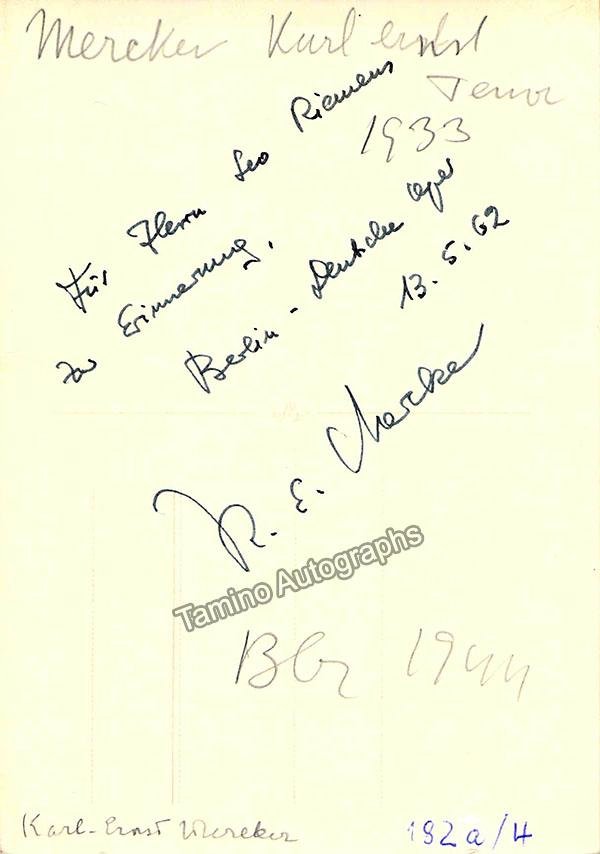 Mercker Karl ernst
Tenor
1933
Für Herrn Leo Riemens
zur Erinnerung.
Berlin - Deutsche Oper
13.5.62
K. E. Mercker
Tamino Autographs
1944
Karl-Ernst Mercker
182a/4